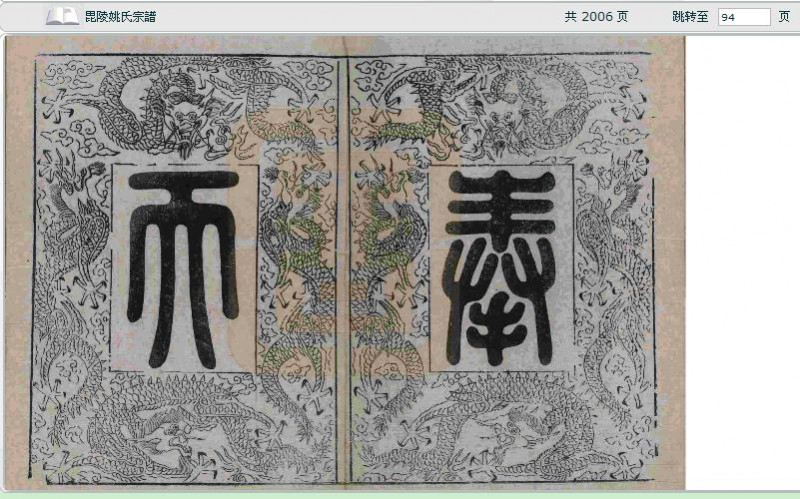 毘陵姚氏宗譜 共 2006 页 跳转至 94 页
奉
天